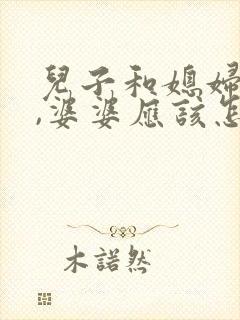 兒子和媳婦
,婆婆應該怎
木諾然